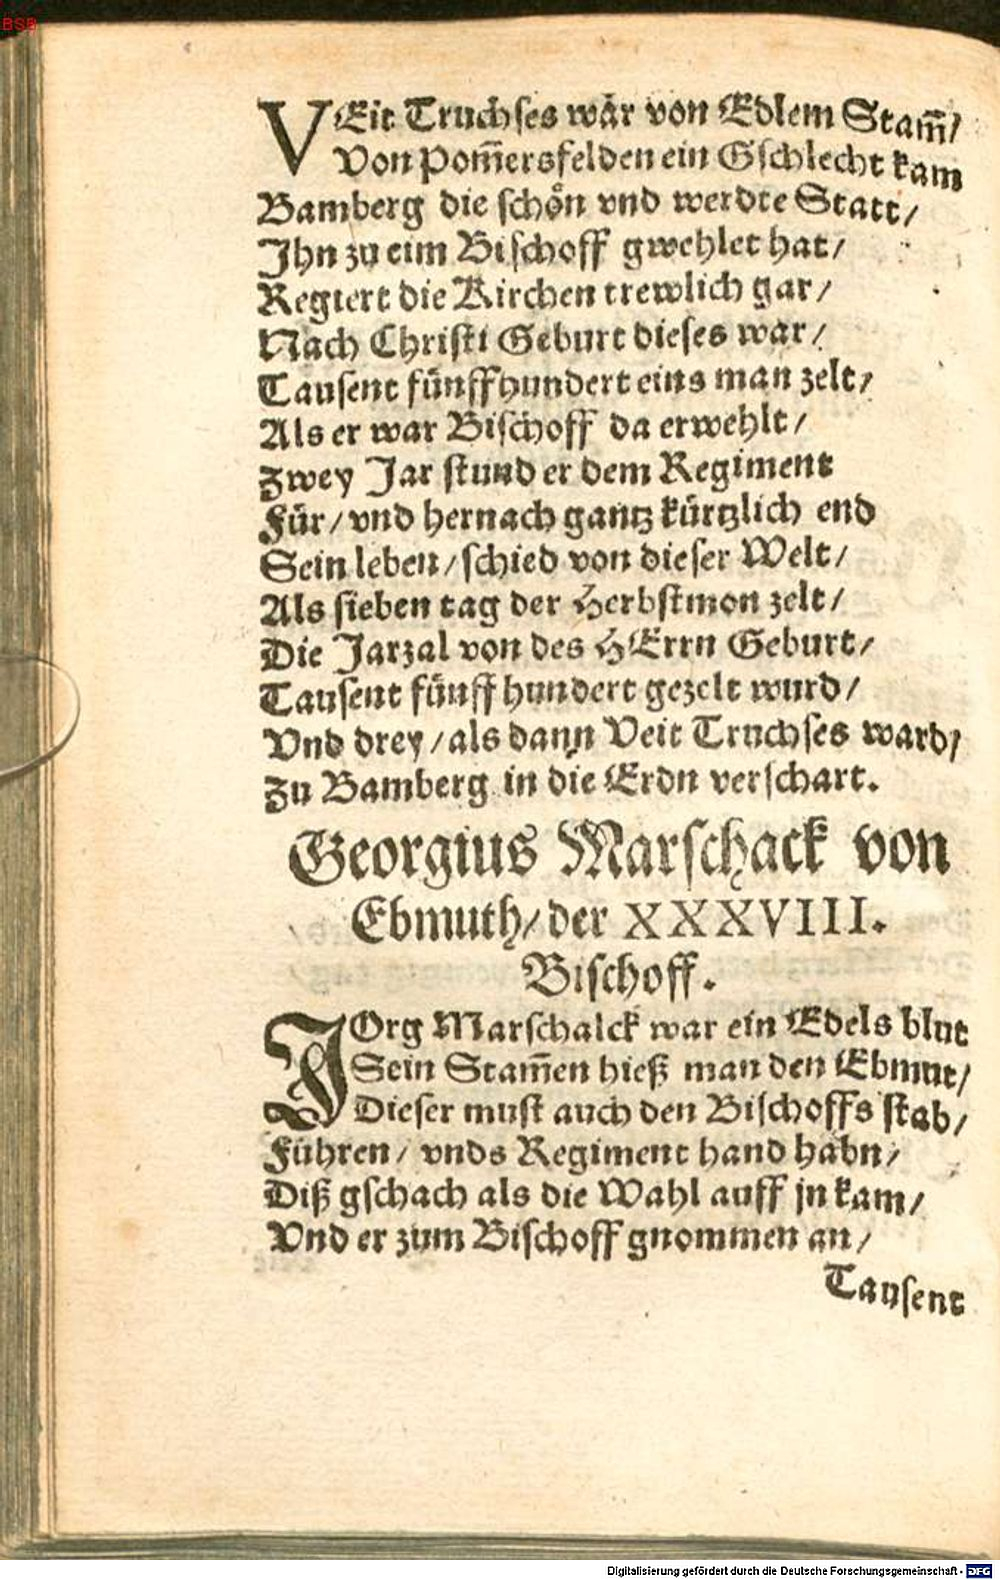 BSB
VEit Truchses war von Edlem Stam̃/
Von Pom̃ersfelden ein Gschlecht kam
Bamberg die schoͤn vnd werdte Statt/
Ihn zu eim Bischoff gwehlet hat/
Regiert die Kirchen trewlich gar/
Nach Christi Geburt dieses war/
Tausent fünffhundert eins man zelt/
Als er war Bischoff da erwehlt/
Zwey Jar stund er dem Regiment
Für/vnd hernach gantz kürtzlich end
Sein leben/schied von dieser Welt/
Als sieben tag der Herbstmon zelt/
Die Jarzal von des HErrn Geburt/
Tausent fünff hundert gezelt wurd/
Vnd drey/als dann Veit Truchses ward/
Zu Bamberg in die Erdn verschart.
Georgius Marschack von
Ebmuth/der XXXVIII.
Bischoff.
JOrg Marschalck war ein Edels blut
Sein Stam̃en hieß man den Ebmut/
Dieser must auch den Bischoffs stab/
Führen/ vnds Regiment hand habn/
Diß gschach als die Wahl auff jn kam/
Vnd er zum Bischoff gnommen an/
Tausent
Digitalisierung gefördert durch die Deutsche Forschungsgemeinschaft - DFG